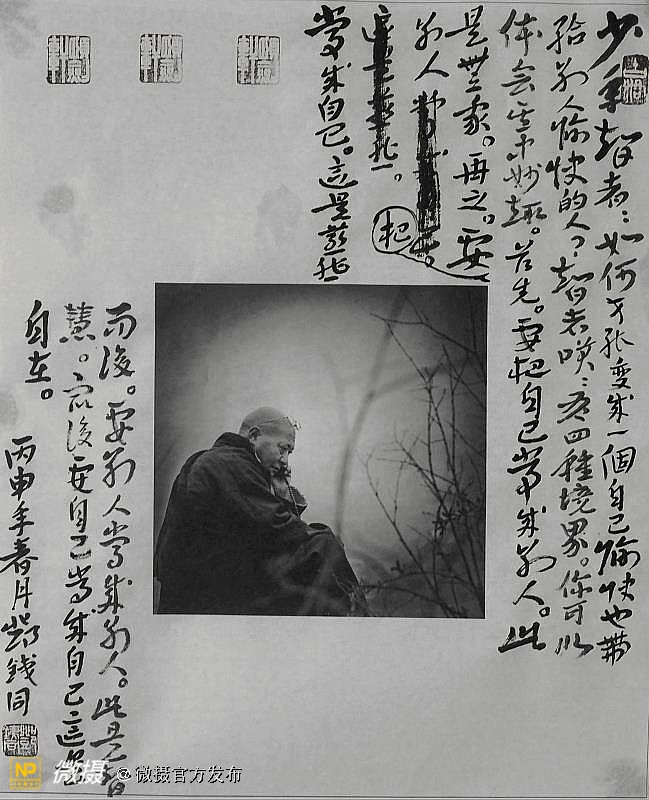 少年智者:如何才能變成一個自己愉快也帶
给别人愉快的人?智者咲:有四種境界。你可以
体会其中妙趣。首先。要把自己當成别人。此
是無我。再之。要
把
别人
當成自己。這是慈悲
而後。要别人當成别人。此是智
慧。最後要自己當成自己這是
自在。
丙申年春月 錢同
NP 微摄 @微摄官方发布